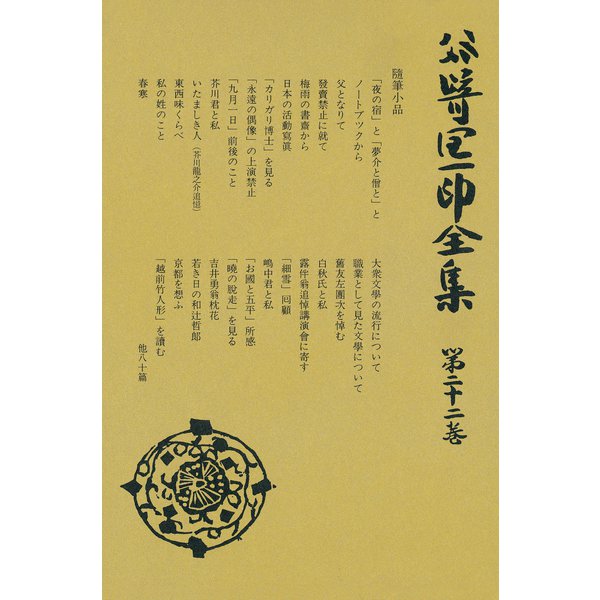 谷崎潤一郎全集
第二十二巻
隨筆小品
「夜の宿」と「夢介と僧と」と
ノートブツクから
父となりて
發賣禁止に就て
梅雨の書齋から
日本の活動寫眞
「カリガリ博士」を見る
「永遠の偶像」の上演禁止
「九月一日」前後のこと
芥川君と私
いたましき人（芥川龍之介追憶）
東西味くらべ
私の姓のこと
春寒
大衆文學の流行について
職業として見た文學について
舊友左團次を悼む
白秋氏と私
露伴翁追悼講演會に寄す
「細雪」囘顧
嶋中君と私
「お國と五平」所感
「曉の脱走」を見る
吉井勇翁枕花
若き日の和辻哲郎
京都を想ふ
「越前竹人形」を讀む
他八十篇